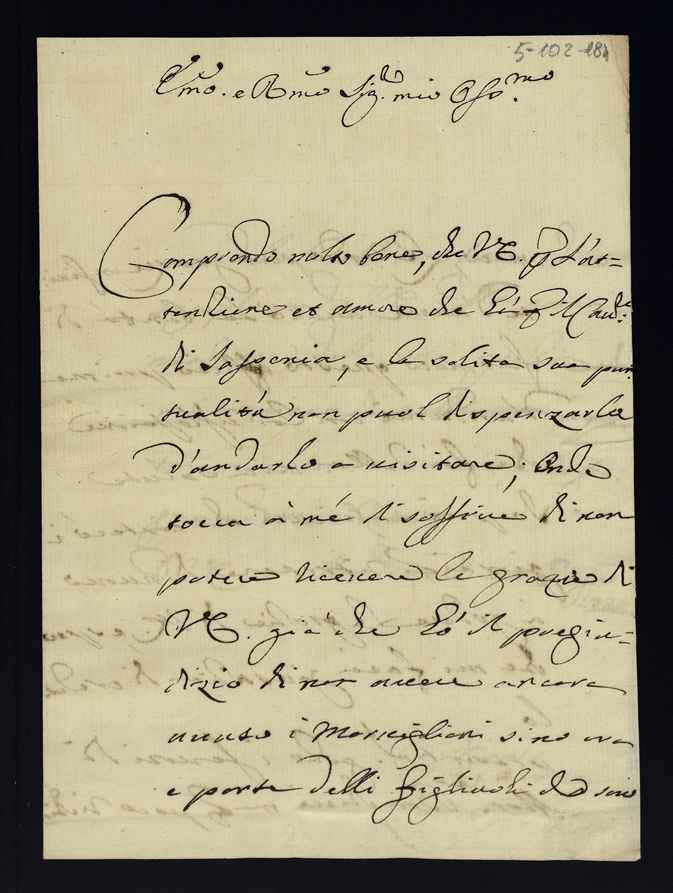 5-102-18
Emo. e Rmo Sig.re mio Oss.mo
Comprendo molto bene, che VE. p l'at=
tentione et amore che hà p il Card.le
di Sassonia, e la solita sua pun
tualità non puol dispenzarla
d'andarlo a visitare; onde
tocca à mé il soffrire di non
potere ricevere le grazie di
VE. già che hò il pregiu=
dizio di non avere ancora
auuto i Marcigliani sino ora
e parte delli figliuoli